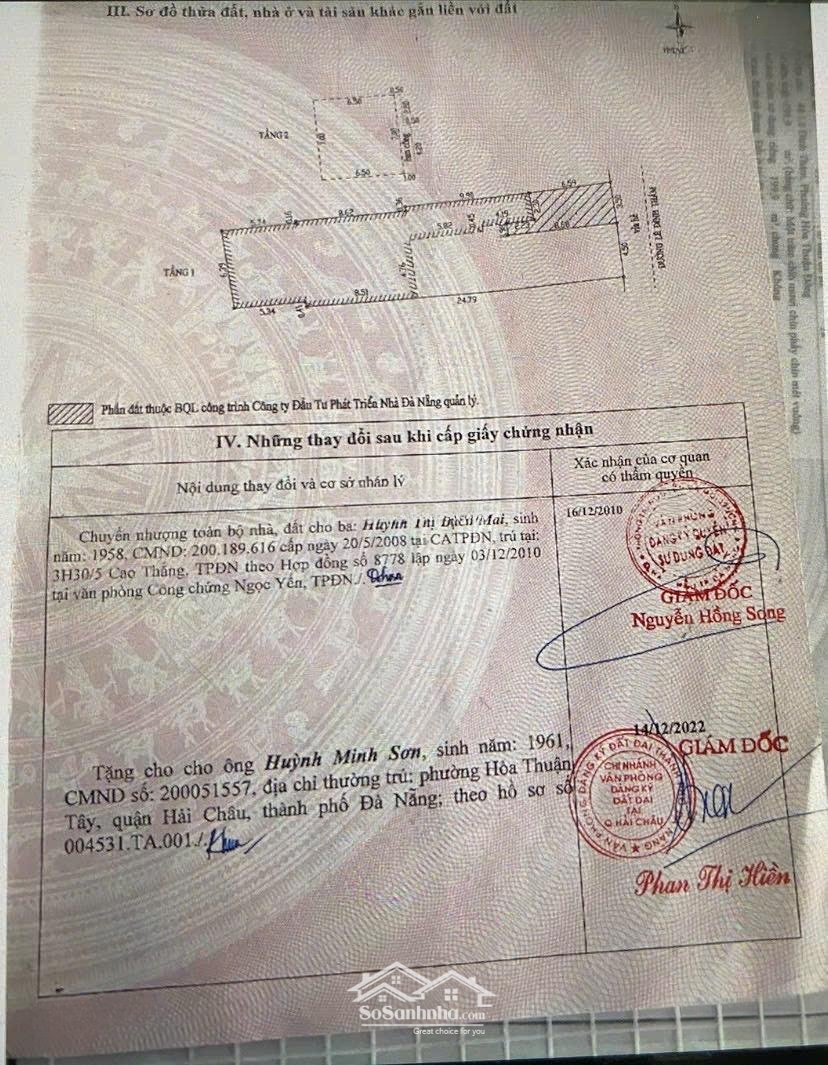 III. Sơ đồ thửa đất, nhà ở và tài sản khác gắn liền với đất
TẦNG 2
6.50
0.50
7.00
ban công
4.20
6.50
1.00
TẦNG 1
5.34
8.62
6.59
3.50
VỈA HÈ
ĐƯỜNG LÊ ĐÌNH THÁM
6.29
5.82
4.15
6.68
4.50
4.76
5.34
8.51
24.79
Phần đất thuộc BQL công trình Công ty Đầu Tư Phát Triển Nhà Đà Nẵng quản lý.
IV. Những thay đổi sau khi cấp giấy chứng nhận
Nội dung thay đổi và cơ sở pháp lý
Xác nhận của cơ quan
có thẩm quyền
Chuyển nhượng toàn bộ nhà, đất cho bà: Huỳnh Thị Bạch Mai, sinh
năm: 1958, CMND: 200.189.616 cấp ngày 20/5/2008 tại CATPĐN, trú tại:
3H30/5 Cao Thắng, TPĐN theo Hợp đồng số 8778 lập ngày 03/12/2010
tại văn phòng Công chứng Ngọc Yến, TPĐN./.
16/12/2010
VĂN PHÒNG
ĐĂNG KÝ QUYỀN
SỬ DỤNG ĐẤT
GIÁM ĐỐC
Nguyễn Hồng Song
Tặng cho cho ông Huỳnh Minh Sơn, sinh năm: 1961,
CMND số: 200051557, địa chỉ thường trú: phường Hòa Thuận
Tây, quận Hải Châu, thành phố Đà Nẵng; theo hồ sơ số
004531.TA.001./.
14/12/2022
GIÁM ĐỐC
CHI NHÁNH
VĂN PHÒNG
ĐĂNG KÝ
ĐẤT ĐAI
TẠI
Q HẢI CHÂU
VĂN PHÒNG ĐĂNG KÝ ĐẤT ĐAI THÀNH PHỐ ĐÀ NẴNG
Phan Thị Hiền
SoSanhnha.com
Great choice for you